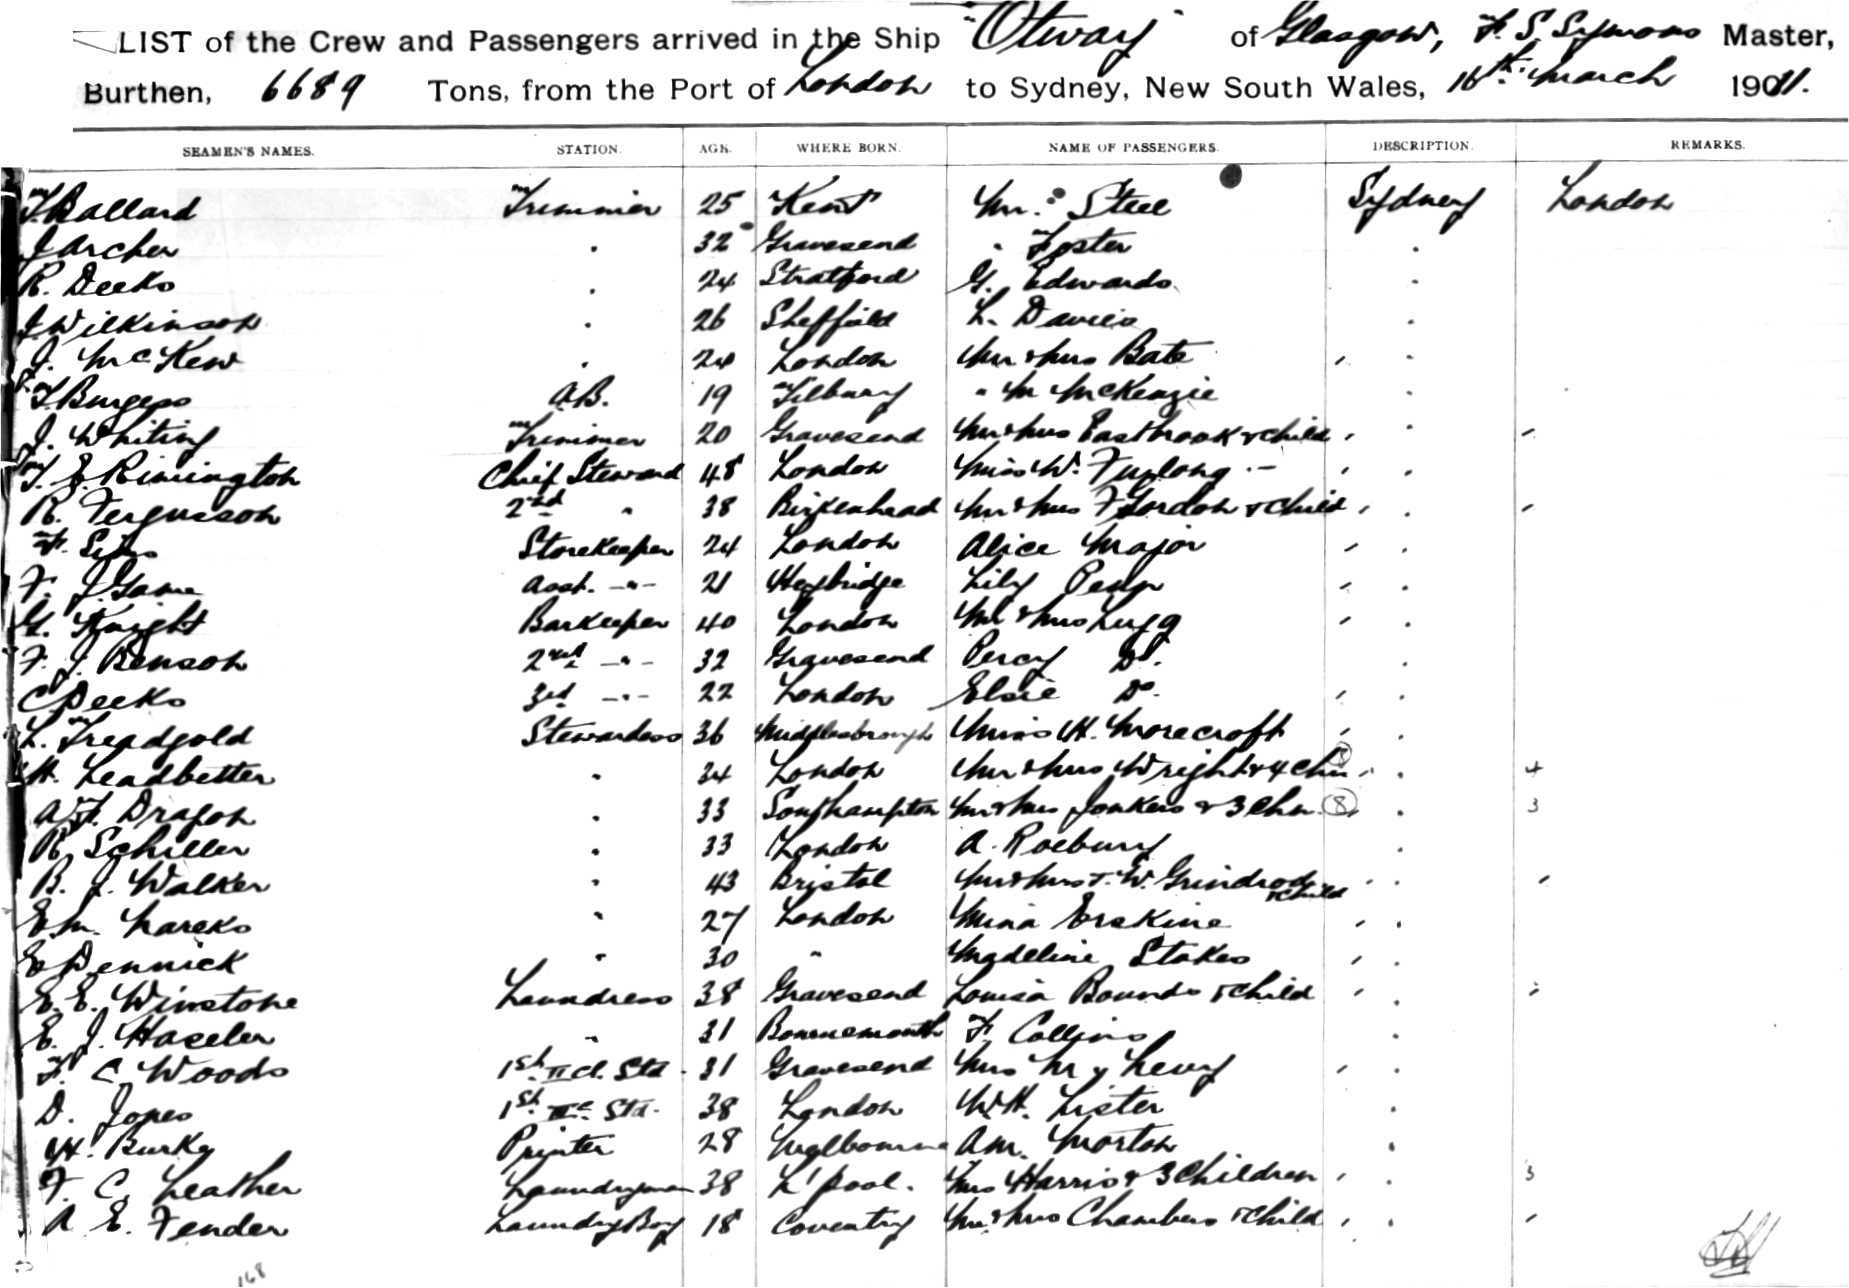 LIST of the Crew and Passengers arrived in the Ship "Otway" of Glasgow, F. S. Symons Master,
Burthen, 6689 Tons, from the Port of London to Sydney, New South Wales, 16th March 1911.
SEAMEN'S NAMES. STATION. AGE. WHERE BORN. NAME OF PASSENGERS. DESCRIPTION. REMARKS.
T Ballard Trimmer 25 Kent Mr. Steel Sydney London
J Archer " 32 Gravesend " Foster "
R. Deeks " 24 Stratford G. Edwards "
J Wilkinson " 26 Sheffield L. Davies "
J. McKew " 24 London Mr & Mrs Bate "
T Burgess A.B. 19 Tilbury " M McKenzie "
J. Whiting Trimmer 20 Gravesend Mr & Mrs Eastbrook & child "
T. E. Rimington Chief Steward 48 London Miss W. Furlong "
R. Fergusson 2nd " 38 Birkenhead Mr & Mrs F Gordon & child "
F. Storekeeper 24 London Alice Major "
F. J. Game Asst. -"- 21 Heybridge Lily "
G. Knight Barkeeper 40 London Mr & Mrs Lugg "
F. J. Benson 2nd -"- 32 Gravesend Percy Do. "
C Deeks 3rd -"- 22 London Elsie Do. "
L. Treadgold Stewardess 36 Middlesbrough Miss H. Morecroft "
H. Leadbetter " 34 London Mr & Mrs Wright & 4 chn " 4
A. Dragon " 33 Southampton Mr & Mrs Jonkers & 3 Chn. 8 " 3
R Schiller " 33 London A. Roebury "
B. J. Walker " 43 Bristol Mr & Mrs T. W. Grindrod "
& child
E M. " 27 London Mina Erskine "
E Pennick " 30 " Madeline Stokes "
E. E. Winstone Laundress 38 Gravesend Louisa Bounds & child "
E. J. Haseler " 31 Bournemouth F. Collins "
F. C Woods 1st II Cl. Std. 31 Gravesend Mrs M Levy "
D. Jones 1st Std. 38 London W. H. Lister "
W. Burke Printer 28 Melbourne A M. Morton "
F. C. Leather Laundryman 38 L'pool. Mrs Harris & 3 Children " 3
A E. Fender Laundry Boy 18 Coventry Mr & Mrs Chambers & child "
168